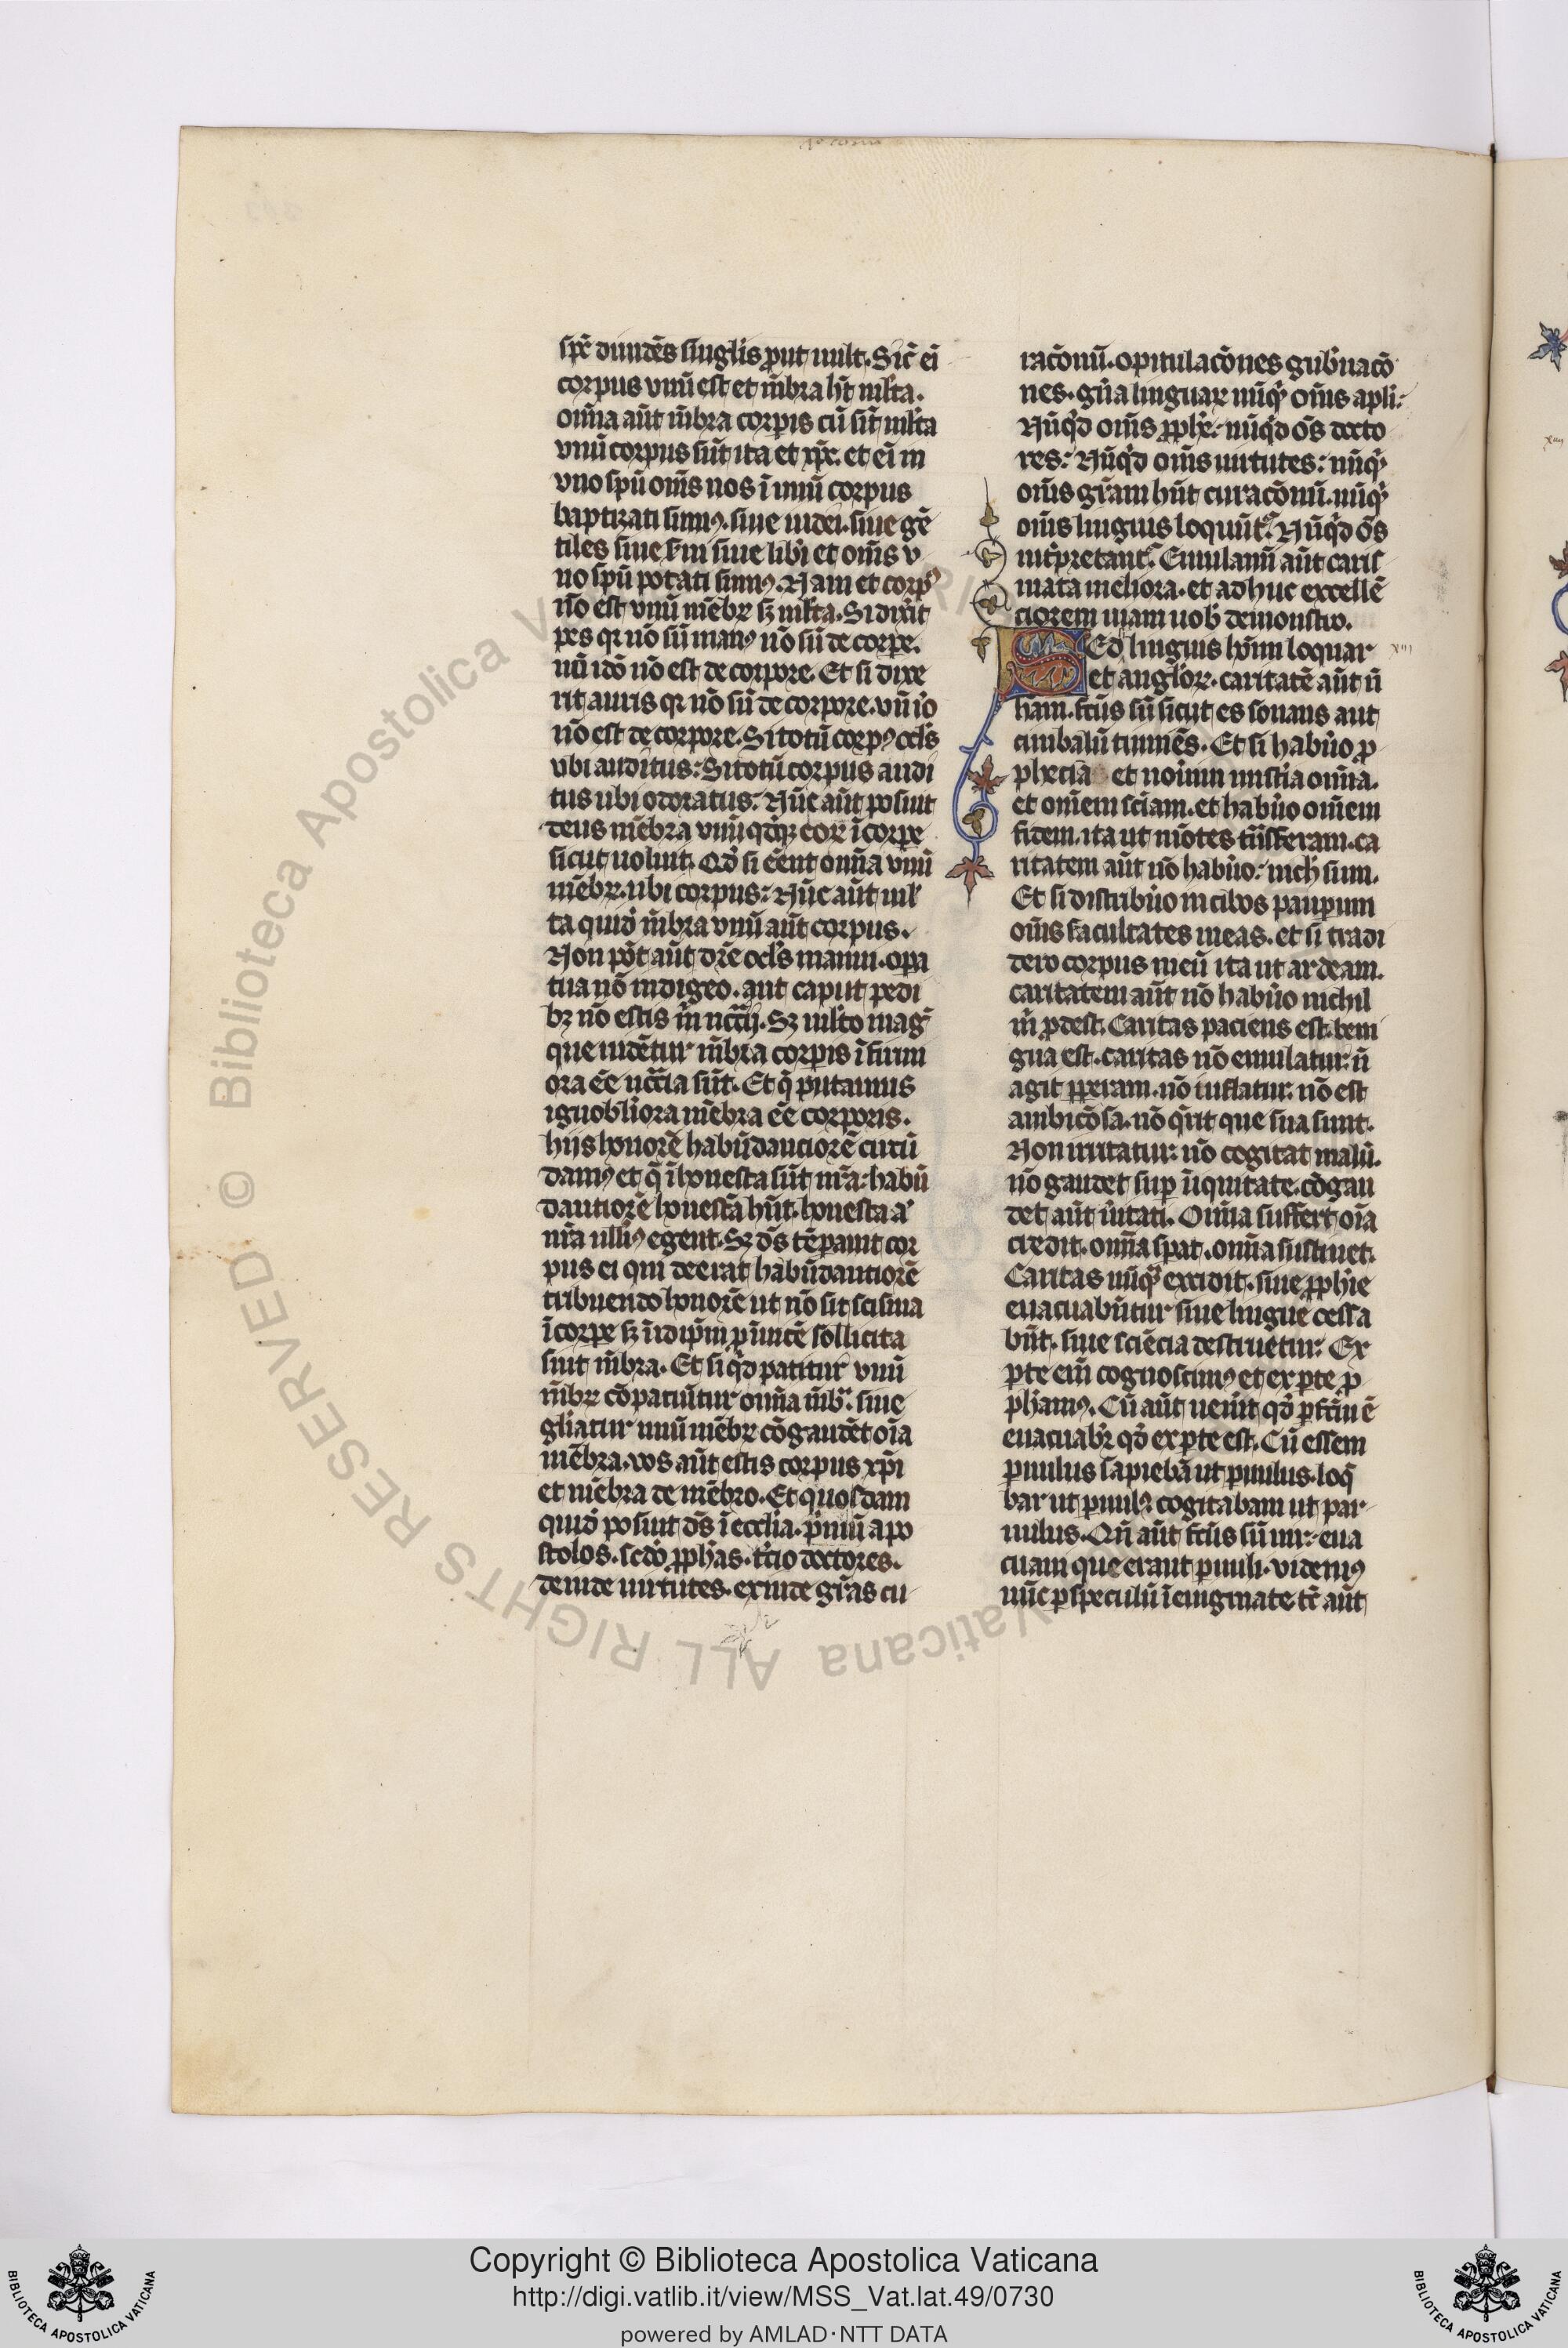 spc̄ diuidēs singlis ꝓut uult. Sic̄ ei̅
corpus vnū est et m̄bra hn̄t mlt̄a.
om̄ia aūt m̄bra corꝑis cū sīt mlt̄a
vnū corpus sūt ita et xp̄c. et ei̅ in
vno spū om̄s nos ī unū corpus
baptizati sumꝰ. siue iudei. siue gē
tiles siue s̄ui siue lib̄i et om̄s v
no spū potati sumꝰ. Nam et corpꝰ
nō est vnū mēbꝝ sꝫ mlt̄a. Si dix̄it
pes qꝛ nō sū manꝰ nō sū de corꝑe.
nū idō nō est de corpore. Et si dixe
rit auris qꝛ nō sū de corpore. nū iō
nō est de corpore. Si totū corpꝰ ocl̄s
vbi auditus: Si totū corpus audi
tus ubi odoratus: Nūc aūt posuit
deus mēbra vnū qd̄qꝫ eoꝝ ī corꝑe
sicut uoluit. Qd̄ si eēnt om̄ia vnū
mēbꝝ. ubi corpus: Nūc aūt ml̄
ta quid̄ m̄bra vnū aūt corpus.
Non pōt aūt dr̄e ocl̄s manui. oꝑa
tua nō indigeo. aut caput pedi
bꝫ nō estis m̄ nccīj. Sꝫ mlt̄o maḡ
que uidētur m̄bra corꝑis ī firmi
ora eēe nccīa sūt. Et q̄ putamus
ignobl̄iora mēbra eēe corporis.
hijs honorē habūdanciorē circū
damꝰ et q̄ īhonesta sūt nr̄a: habū
dantiorē honestā hn̄t. honesta aᷓ
nr̄a ulliꝰ egent. Sꝫ dꝰs tēꝑauit cor
pus ei qui deerat habūdantiorē
tribuendo honorē ut nō sit scisma
ī corꝑe sꝫ ī idip̄m ꝓ inuicē sollicita
sint m̄bra. Et si qd̄ patitur vnū
m̄bꝝ cōpatiūtur om̄ia m̄bᷓ. siue
gl̄iatur unū mēbꝝ cōgaudēt oīa
mēbra. vos aūt estis corpus xp̄i
et mēbra de mēbro. Et quosdam
quid̄ posuit dꝰs ī eccl̄ia. p̄miū apo
stolos. sc̄do ꝓph̄as. t̄cio doctores.
deinde uirtutes. exinde gr̄as cu
racōnū. opitulacōnes gub̄nacō
nes. gn̄a linguaꝝ nūqͥ om̄s apl̄i:
Nūqͥd om̄s ꝓph̄e: nūqͥd oꝰs docto
res: Nūqͥd om̄s uirtutes: nūqͥ
om̄s gr̄am hn̄t curacōnū. nūqͥ
om̄s linguis loquūtᷣ: Nūqͥd oꝰs
int̄pretantᷣ: Emulamī aūt caris
mata meliora. et adhuc excellē
ciorem uiam uob̄ demonstro.
Sed linguis hoīm loquar xiii
et angl̄oꝝ. caritatē aūt n̄
ham̄. fcūs sū sicut es sonans aut
cimbalū tinniēs. Et si hab̄uo ꝓ
phetiā et nou̇im mist̄ia om̄ia.
et om̄em sciām. et hab̄uo om̄em
fidem. ita ut mōtes trn̄sferam. ca
ritatem aūt nō hab̄uo: nich̄ sum.
Et si distrib̄uo in cibos pauꝑum
om̄s facultates meas. et si tradi
dero corpus meū ita ut ardeam.
caritatem aūt nō hab̄uo nichil
m̄ ꝓdest. Caritas paciens est. beni
gna est. caritas nō emulatur. n̄
agit ꝑꝑeram. nō inflatur. nō est
ambicōsa. nō q̄rit que sua sunt.
Non irritatur: nō cogitat malū.
nō gaudet suꝑ īiquitate. cōgau
det aūt ūitati. Om̄ia suffert oīa
credit. om̄ia sꝑat. om̄ia sustinet.
Caritas nūqᷓ excidit. siue ꝓph̄ie
euacuabūtur siue lingue cessa
būt. siue sciēcia destruetur: Ex
ꝑte eim̄ cognoscimꝰ et ex ꝑte ꝓ
ph̄amꝰ. Cū aūt uen̄it qd̄ ꝑfcū ē
euacuabr̄ qd̄ ex ꝑte est. Cū essem
ꝑuulus sapiebā ut ꝑuulus. loq̄
bar ut ꝑuulꝰ cogitabam ut par
uulus. Qn̄ aūt fcūs sū uir: eua
cuaui que erant ꝑuuli. videmꝰ
nūc ꝑ speculū ī enigmate tc̄ aūt
Copyright © Biblioteca Apostolica Vaticana
http://digi.vatlib.it/view/MSS_Vat.lat.49/0730
powered by AMLAD·NTT DATA
BIBLIOTECA APOSTOLICA VATICANA
BIBLIOTECA APOSTOLICA VATICANA
© Biblioteca Apostolica Vaticana ALL RIGHTS RESERVED